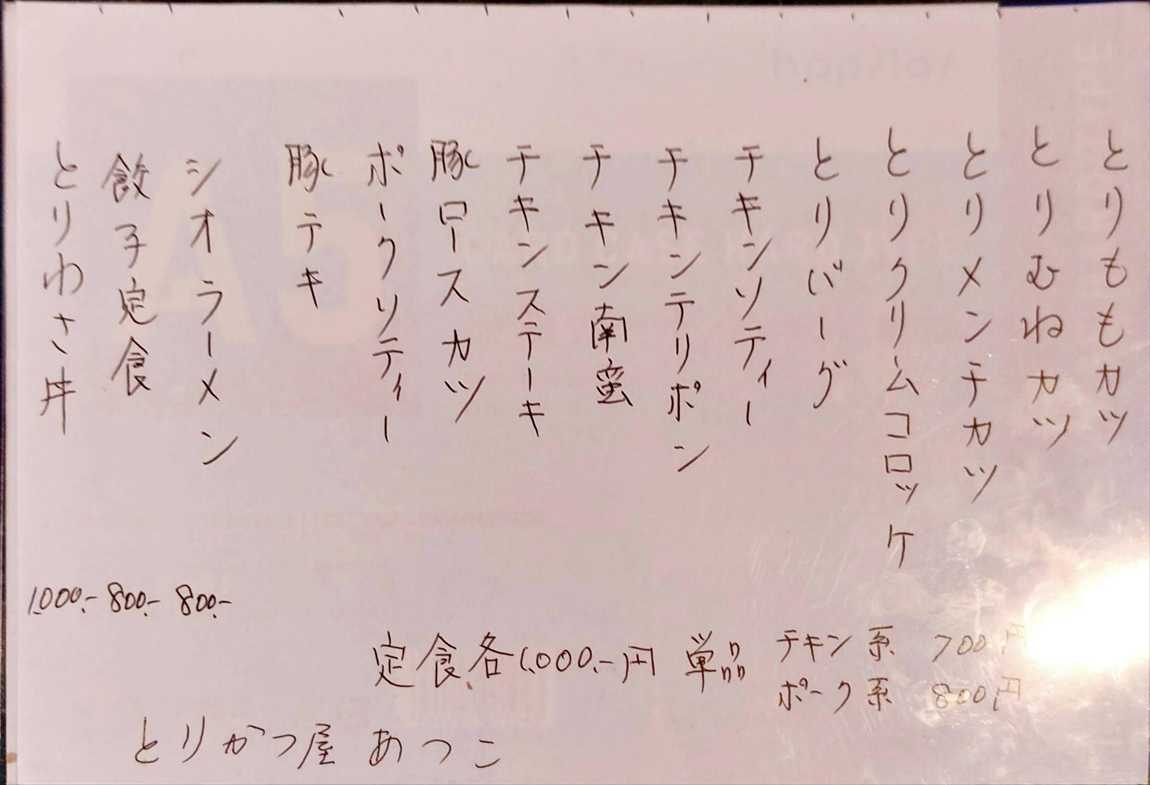 とりももカツ
とりむねカツ
とりメンチカツ
とりクリームコロッケ
とりバーグ
チキンソティー
チキンテリポン
チキン南蛮
チキンステーキ
豚ロースカツ
ポークソティー
豚テキ
シオラーメン
800.-
餃子定食
800.-
とりわさ丼
1,000.-
定食各1,000.-円 単品 チキン系 700円
ポーク系 800円
とりかつ屋 あつこ